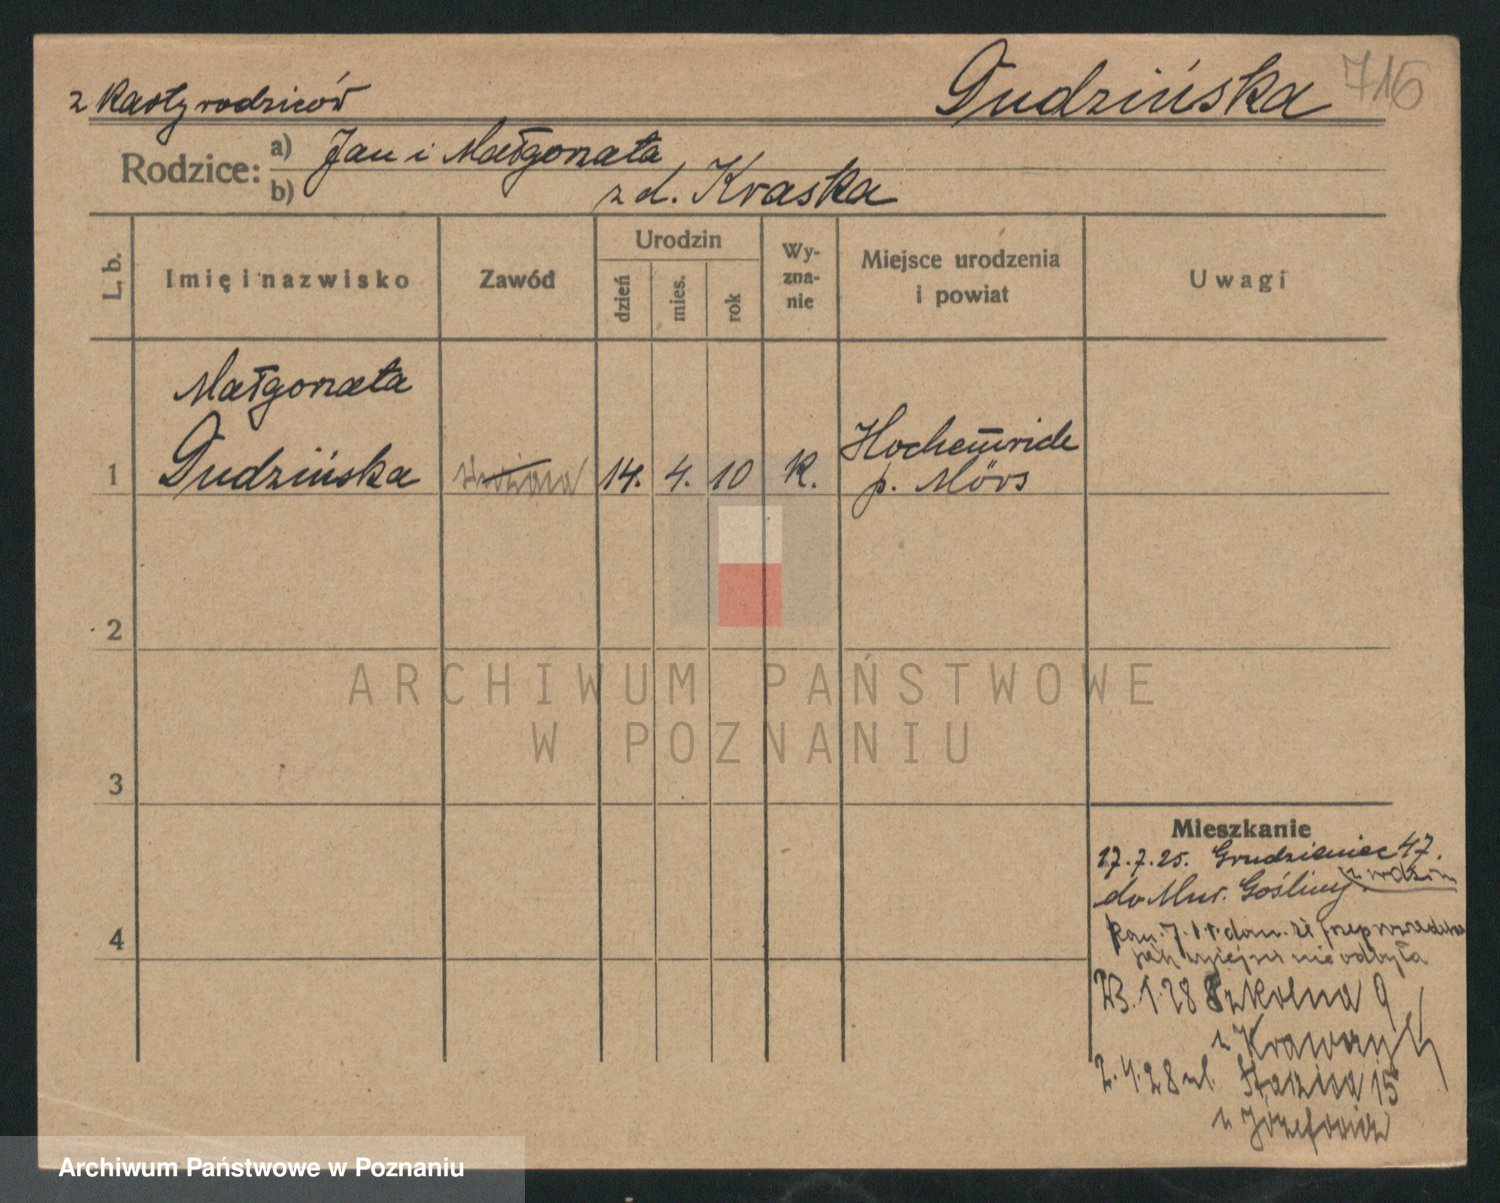 z Karty rodziców
Dudzińska 716
Rodzice: a) Jan i Małgorzata
b) z d. Kraska
L. b.
Imię i nazwisko
Zawód
Urodzin
dzień
mies.
rok
Wy-
zna-
nie
Miejsce urodzenia
i powiat
Uwagi
Małgorzata
1 Dudzińska 14. 4. 10 K. Hochemmrich
p. Mörs
2
3
4
ARCHIWUM PAŃSTWOWE
W POZNANIU
Mieszkanie
27.7.25. Grudzieniec 47.
do Mur. Gośliny
nie odbyła
23.1.28 Szkolna 9
z
2.4.28 ul. 15
z
Archiwum Państwowe w Poznaniu